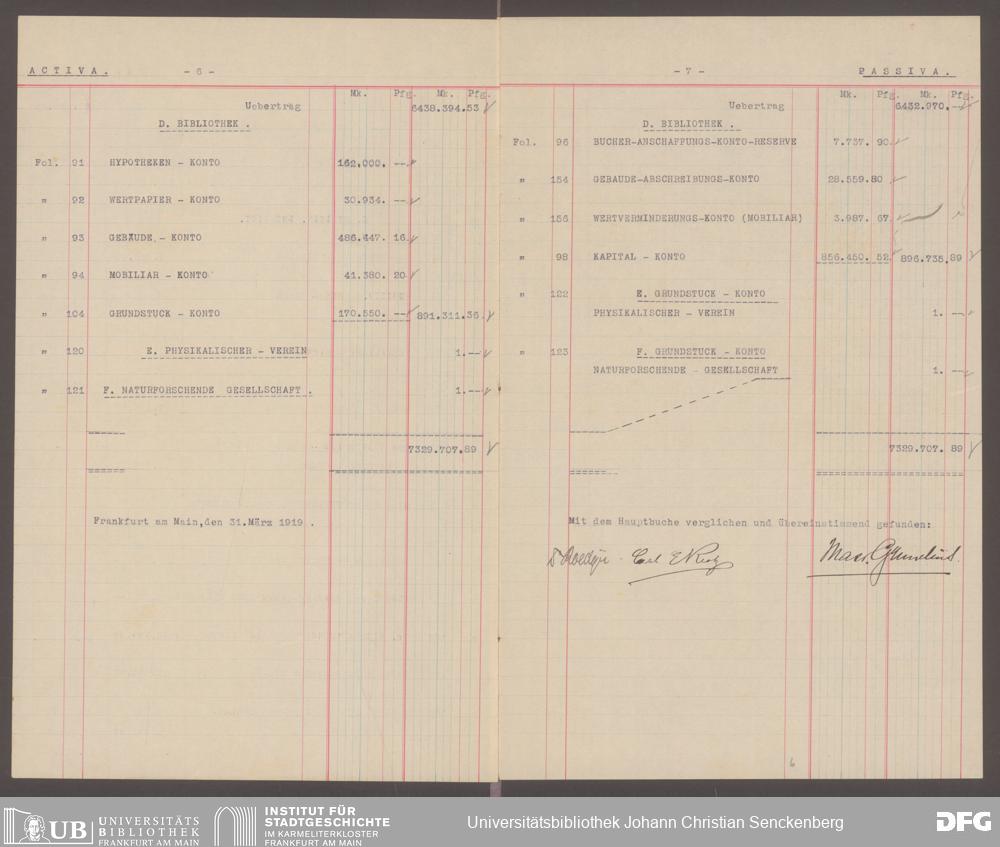 ACTIVA.
- 6 -
Mk. Pfg. Mk. Pfg.
Uebertrag 6438.394.53
D. BIBLIOTHEK .
Fol. 91 HYPOTHEKEN - KONTO 162.000. --
" 92 WERTPAPIER - KONTO 30.934. --
" 93 GEBÄUDE - KONTO 486.447. 16
" 94 MOBILIAR - KONTO 41.380. 20
" 104 GRUNDSTUCK - KONTO 170.550. -- 891.311.36
" 120 E. PHYSIKALISCHER - VEREIN 1.--
" 121 F. NATURFORSCHENDE GESELLSCHAFT . 1.--
7329.707.89
Frankfurt am Main,den 31.März 1919 .
- 7 -
PASSIVA.
Mk. Pfg. Mk. Pfg.
Uebertrag 6432.970.--
D. BIBLIOTHEK .
Fol. 96 BUCHER-ANSCHAFFUNGS-KONTO-RESERVE 7.737. 90
" 154 GEBAUDE-ABSCHREIBUNGS-KONTO 28.559.80
" 156 WERTVERMINDERUNGS-KONTO (MOBILIAR) 3.987. 67
" 98 KAPITAL - KONTO 856.450. 52 896.735.89
" 122 E. GRUNDSTUCK - KONTO
PHYSIKALISCHER - VEREIN 1. --
" 123 F. GRUNDSTUCK - KONTO
NATURFORSCHENDE - GESELLSCHAFT 1. --
7329.707. 89
Mit dem Hauptbuche verglichen und übereinstimmend gefunden:
6
UB UNIVERSITÄTS
BIBLIOTHEK
FRANKFURT AM MAIN
INSTITUT FÜR
STADTGESCHICHTE
IM KARMELITERKLOSTER
FRANKFURT AM MAIN
Universitätsbibliothek Johann Christian Senckenberg
DFG